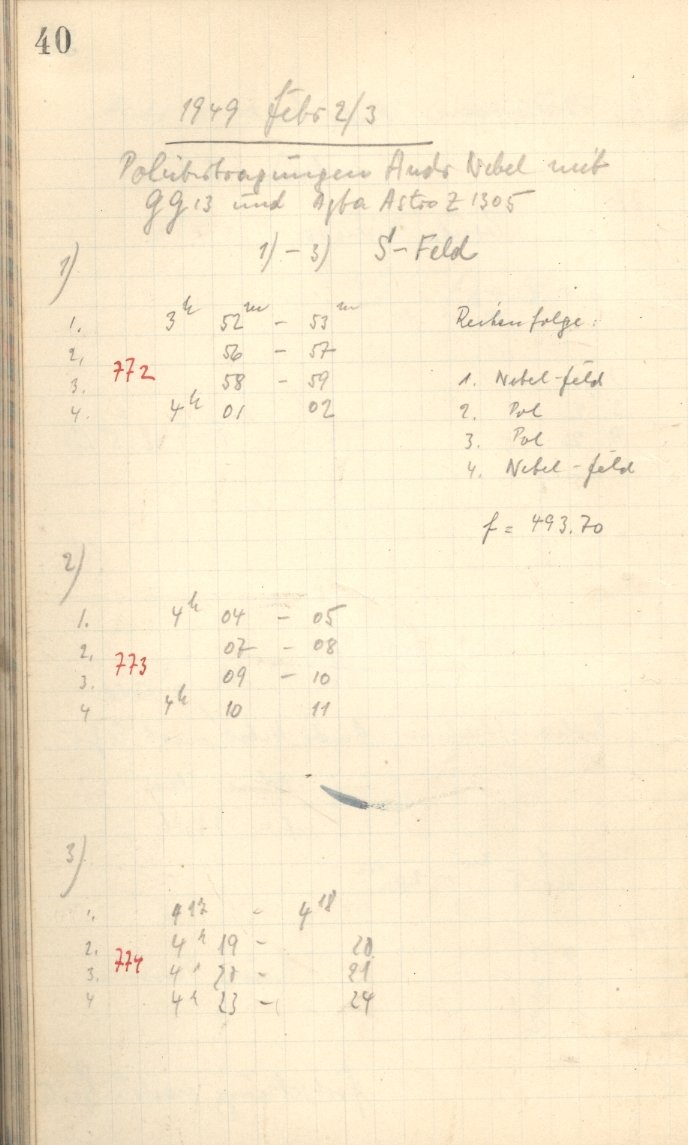 40
1949 Febr 2/3
Polübertragungen Andr Nebel mit
GG 13 und Agfa Astro Z 1305
1) - 3) S-Feld
1)
1. 3h 52m - 53m Reihenfolge:
2. 56 - 57
772
3. 58 - 59 1. Nebel-feld
4. 4h 01 02 2. Pol
3. Pol
4. Nebel-feld
f = 493.70
2)
1. 4h 04 - 05
2. 07 - 08
773
3. 09 - 10
4 4h 10 11
3)
1. 4 17 - 4 18
2. 4h 19 - 20
774
3. 4h 20 - 21
4 4h 23 - 24